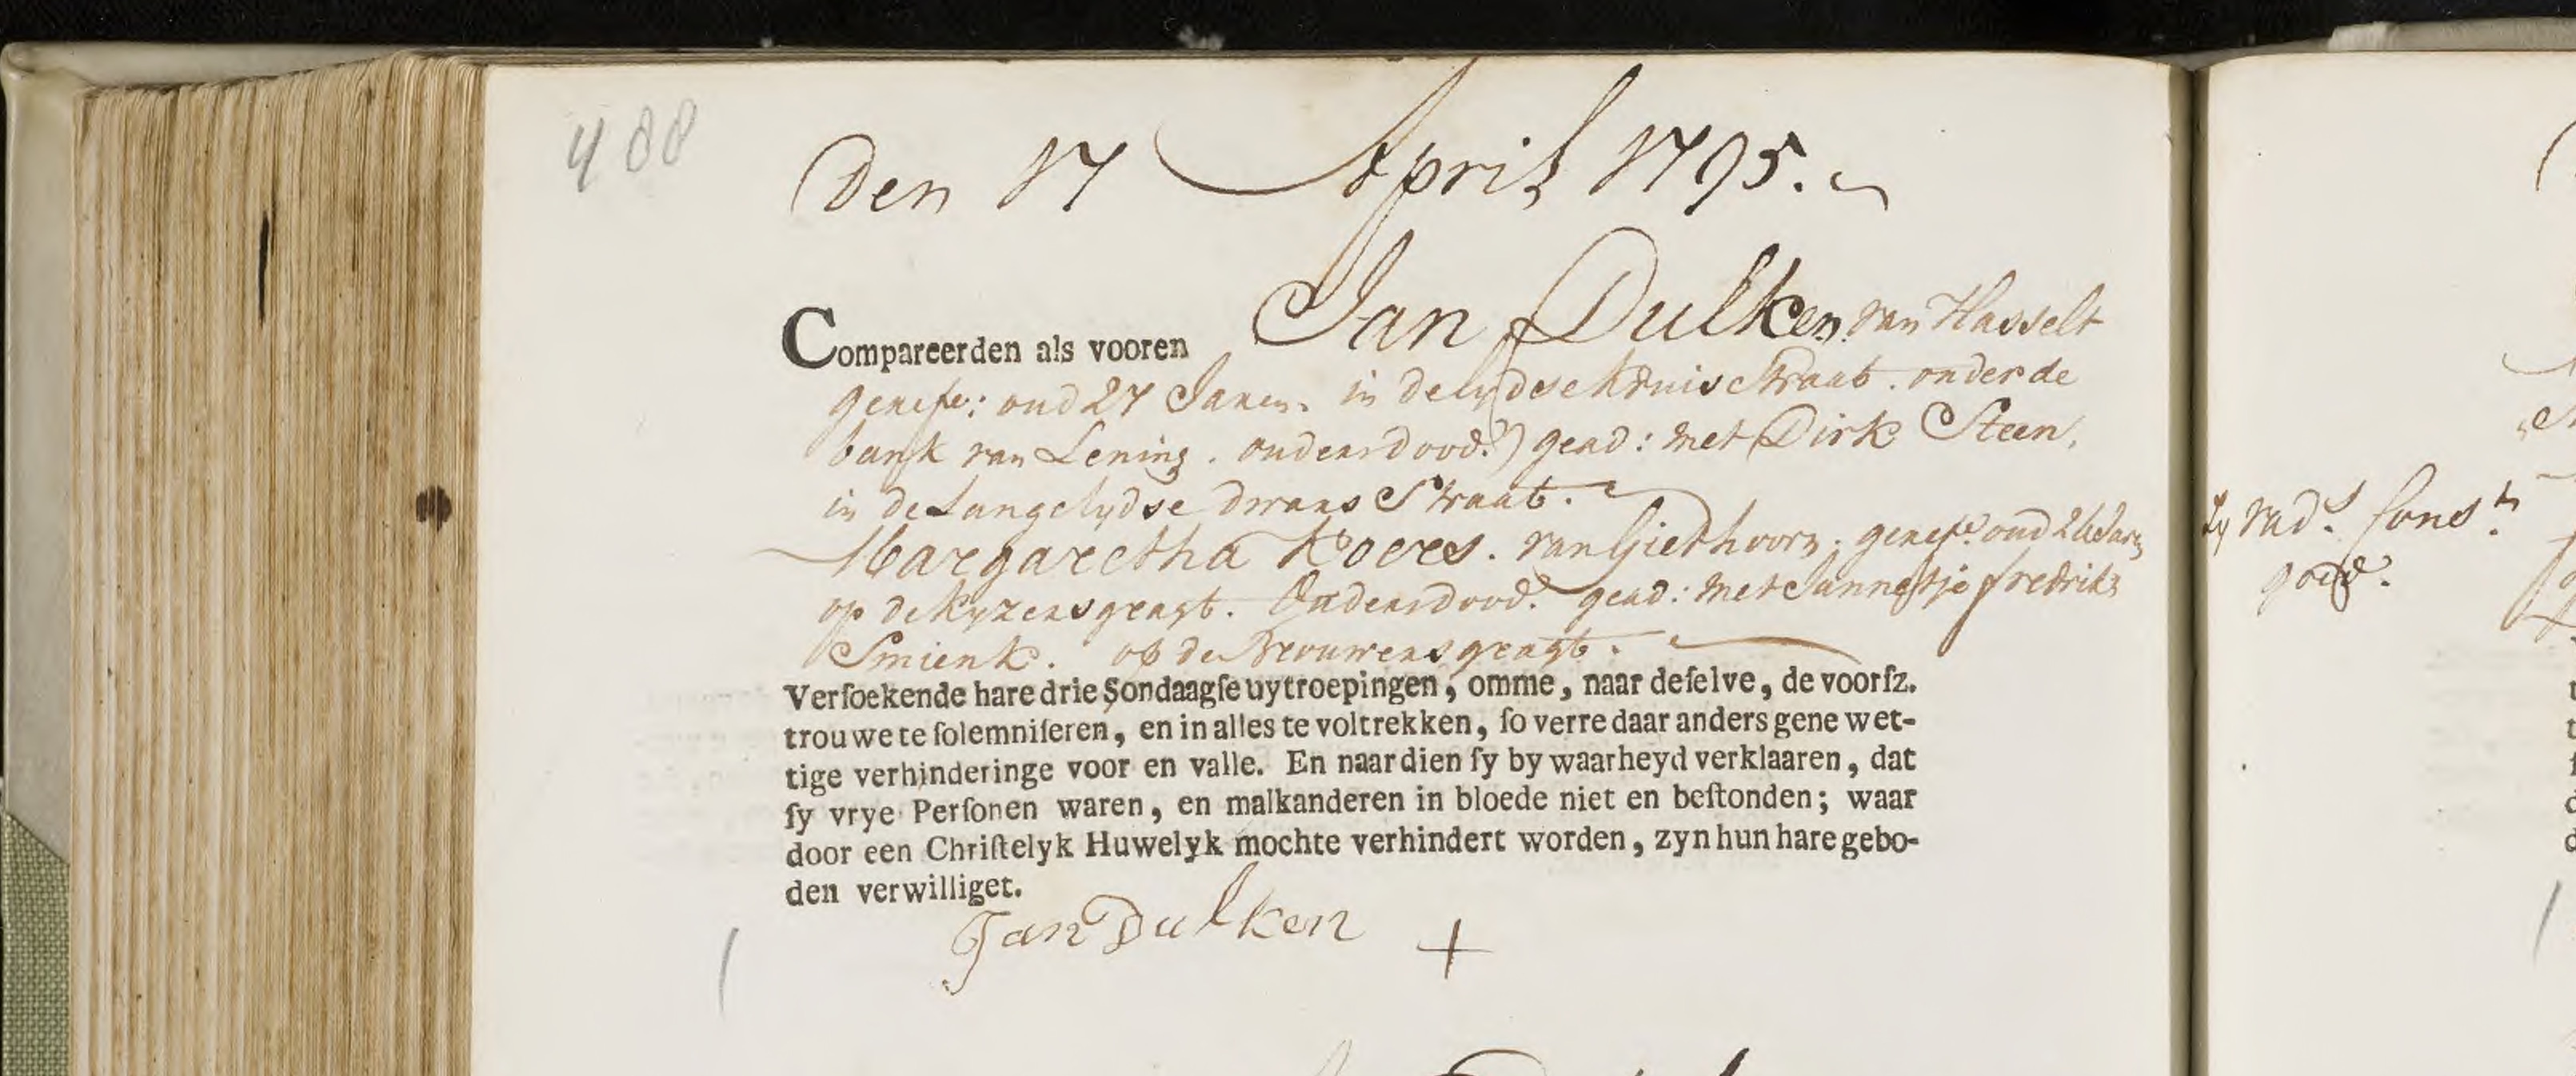 488
Den 17 April 1795.
Compareerden als vooren Jan Dulken van Hasselt
geref: oud 27 Jaren. in de lydse kruis Straat. onder de
bank van Lening. ouders dood. gead: met Dirk Steen,
in de Lange lydse dwars Straat.
Margaretha Koers. van Giethoorn. geref: oud 26 Jaren
op de Kyzersgragt. Ouders dood. gead: met Jannetje fredriks
Smienk. op de Brouwersgragt.
Verſoekende hare drie Sondaagſe uytroepingen, omme, naar deſelve, de voorſz.
trouwe te ſolemniſeren, en in alles te voltrekken, ſo verre daar anders gene wet-
tige verhinderinge voor en valle. En naardien ſy by waarheyd verklaaren, dat
ſy vrye Perſonen waren, en malkanderen in bloede niet en beſtonden; waar
door een Chriſtelyk Huwelyk mochte verhindert worden, zyn hun hare gebo-
den verwilliget.
Jan Dulken +